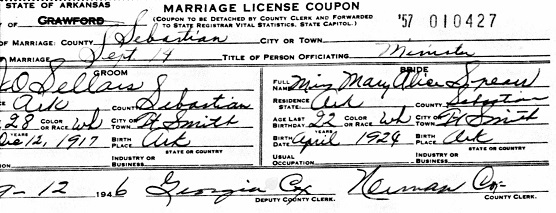 STATE OF ARKANSAS MARRIAGE LICENSE COUPON
Y OF CRAWFORD (COUPON TO BE DETACHED BY COUNTY CLERK AND FORWARDED TO STATE REGISTRAR VITAL STATISTICS, STATE CAPITOL.) '57 010427
OF MARRIAGE: COUNTY Sebastian CITY OR TOWN
MARRIAGE Sept 14 TITLE OF PERSON OFFICIATING Minister
GROOM BRIDE
O Sellars FULL NAME Miss Mary Alice
Ark COUNTY Sebastian RESIDENCE STATE Ark COUNTY Sebastian
28 COLOR OR RACE Wh CITY OR TOWN Ft Smith AGE LAST BIRTHDAY 22 COLOR OR RACE Wh CITY OR TOWN Ft Smith
12, 1917 BIRTH PLACE Ark BIRTH DATE April 1924 BIRTH PLACE Ark
YEARS STATE OR COUNTRY YEARS STATE OR COUNTRY
INDUSTRY OR BUSINESS USUAL OCCUPATION INDUSTRY OR BUSINESS
9-12 1946 Georgia Cox Neiman Cox
DEPUTY COUNTY CLERK. COUNTY CLERK.